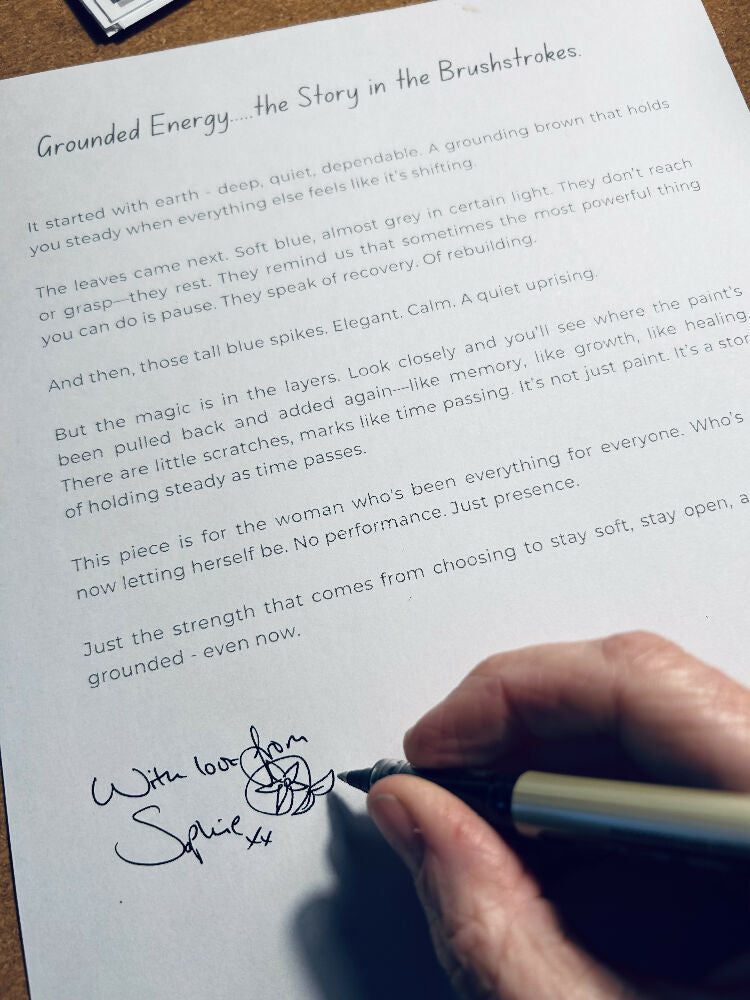 Grounded Energy.....the Story in the Brushstrokes.
It started with earth - deep, quiet, dependable. A grounding brown that holds
you steady when everything else feels like it's shifting.
The leaves came next. Soft blue, almost grey in certain light. They don't reach
or grasp—they rest. They remind us that sometimes the most powerful thing
you can do is pause. They speak of recovery. Of rebuilding.
And then, those tall blue spikes. Elegant. Calm. A quiet uprising.
But the magic is in the layers. Look closely and you'll see where the paint's
been pulled back and added again—like memory, like growth, like healing.
There are little scratches, marks like time passing. It's not just paint. It's a stor
of holding steady as time passes.
This piece is for the woman who's been everything for everyone. Who's
now letting herself be. No performance. Just presence.
Just the strength that comes from choosing to stay soft, stay open, a
grounded - even now.
With love from
Sophie xx